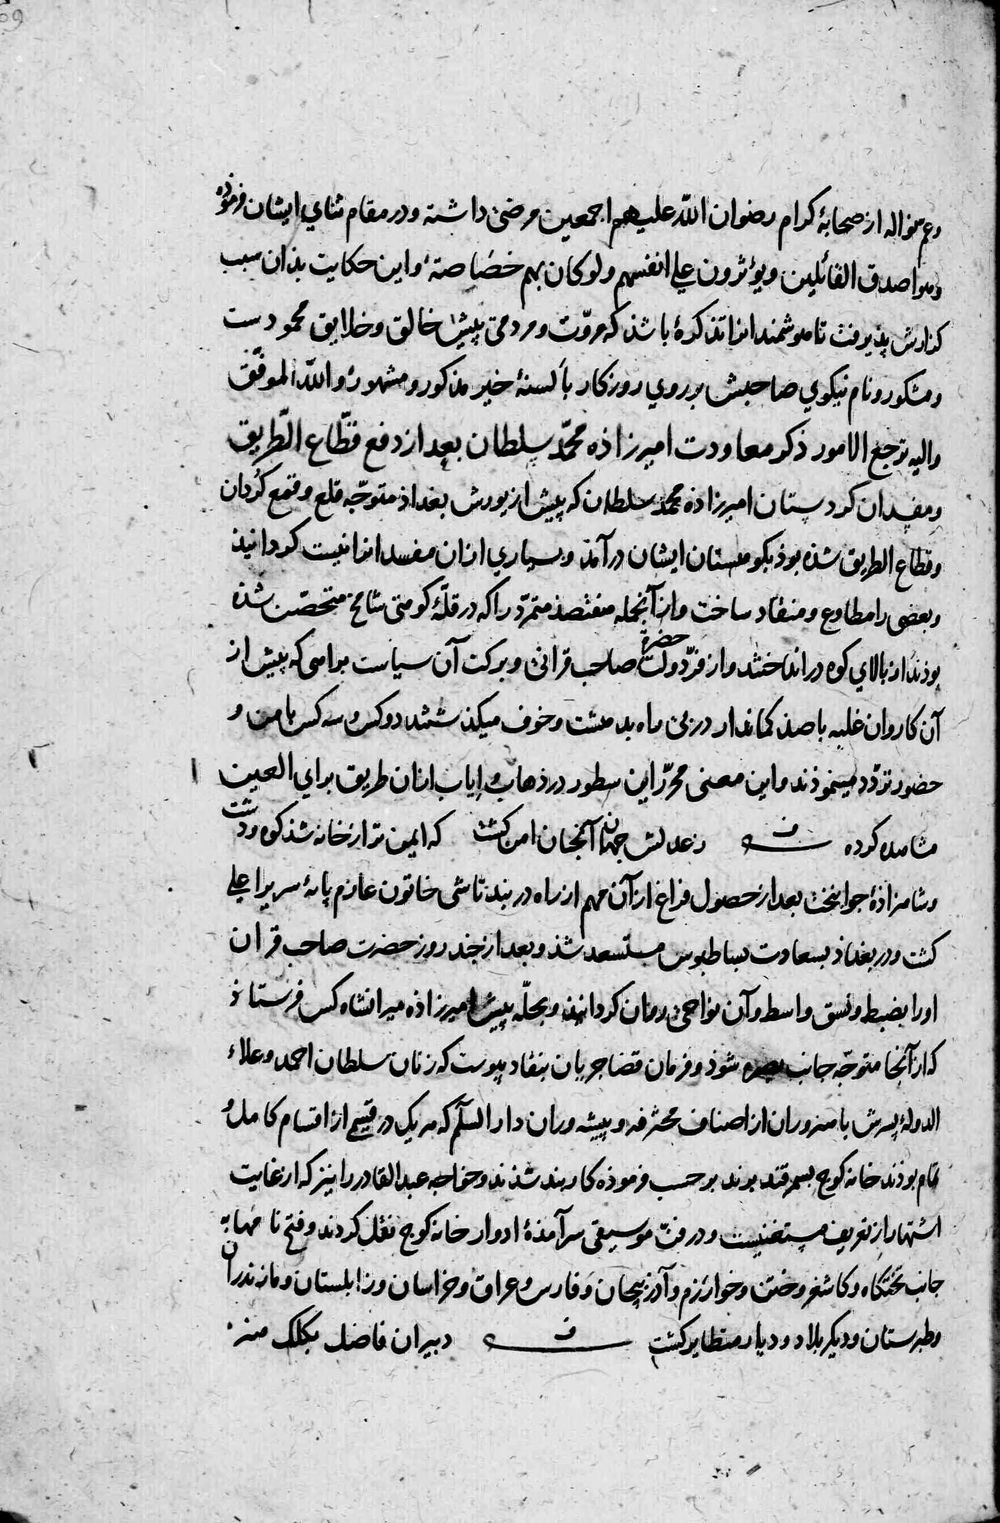 وعم نواله از صحابۀ کرام رضوان اللّه علیهم اجمعین مرضی داشته و در مقام ثنای ایشان فرموده
وهو اصدق القائلین ویؤثرون علی انفسهم ولو کان بهم خصاصة واین حکایت بذان سبب
کزارش پذیرفت تا هوشمندانرا تذکرۀ باشذ که مروّت و مردمی پیش خالق و خلایق محمودست
ومشکور و نام نیکوی صاحبش بر روی روزکار بألسنۀ خیر مذکور و مشهور واللّه الموفّق
والیه ترجع الامور ذکر معاودت امیرزاده محمّد سلطان بعد از دفع قطّاع الطّریق
ومفسدان کردستان امیرزاذه محمد سلطان که پیش از یورش بغداذ متوجّه قلع و قمع کُردان
وقطاع الطریق شذه بوذ بکوهستان ایشان درآمذ و بسیاری ازان مفسدانرا نیست کردانیذ
وبعضی را مطاوع و منقاد ساخت و از آنجمله هفتصذ متمرّد را که در قلّۀ کوهی شامخ متحصّن شذه
بوذند از بالای کوه در انداختند و از فرّ دولت حضرة صاحب قرانی و برکت آن سیاست براهی که پیش از
آن کاروان غلبه با صذ کماندار در پی راه بدهشت و خوف میکذشتند دو کس و سه کس با امن و
حضور تردّد مینموذند و این معنی محرّر این سطور در ذهاب و ایاب ازان طریق برای العین
مشاهده کوده ف زعدلش جهان آنجنان امن کشت که ایمن تر از خانه شذ کوه و دشت
وشاهزاذۀ جوانبخت بعد از حصول فراغ از آن مهم از راه دربند تاشی خاتون عازم پایۀ سریر اعلی
کشت و در بغداذ بسعادت بساطبوس مستسعد شذ و بعد از جند روز حضرت صاحب قران
اورا بضبط و نسق واسط و آن نواحی روان کردانید و بحلّه پیش امیرزاذه میرانشاه کس فرستاذ
که از آنجا متوجّه جانب بصره شوذ و فرمان قضا جریان بنفاد پیوست که زنان سلطان احمد و علاء
الدوله پسرش با هنروران از اصناف محترفه و پیشه وران دار السلام که هر یک در قسمی از اقسام کامل و
تمام بوذند خانه کوج بسمرقند برند بر حسب فرموذه کاربند شذند و خواجه عبد القادر را نیز که از غایت
اشتهار از تعریف مستغنیست و در فن موسیقی سرآمذۀ ادوار خانه کوج نقل کردند و فتح نامها به
جانب تختکاه و کاشغر و ختن و خوارزم و آذربیجان و فارس و عراق و خراسان و زابلستان و مازندران
وطبرستان و دیکر بلاد و دیار متطایر کشت ف دبیران فاضل بکلک هنر